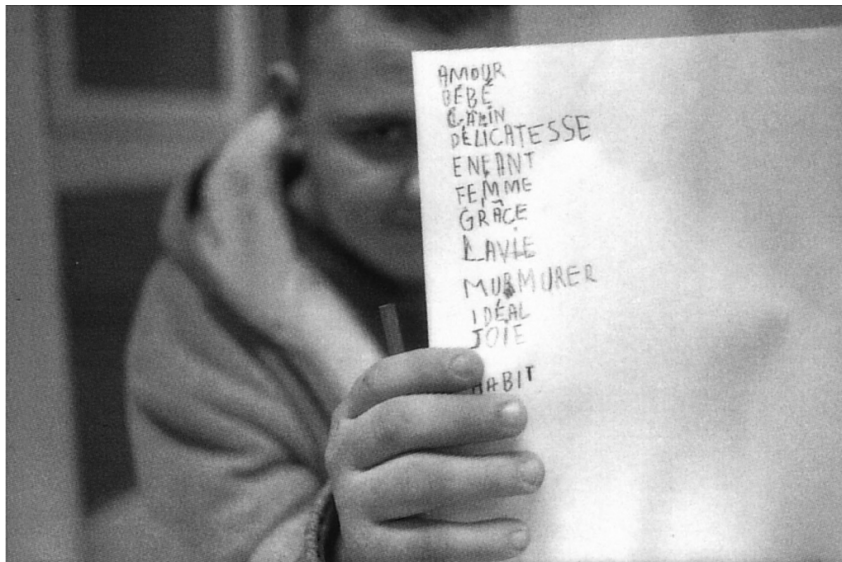 AMOUR
BÉBÉ
CALIN
DÉLICATESSE
ENFANT
FEMME
GRÂCE
LAVIE
MURMURER
IDÉAL
JOIE
HABIT